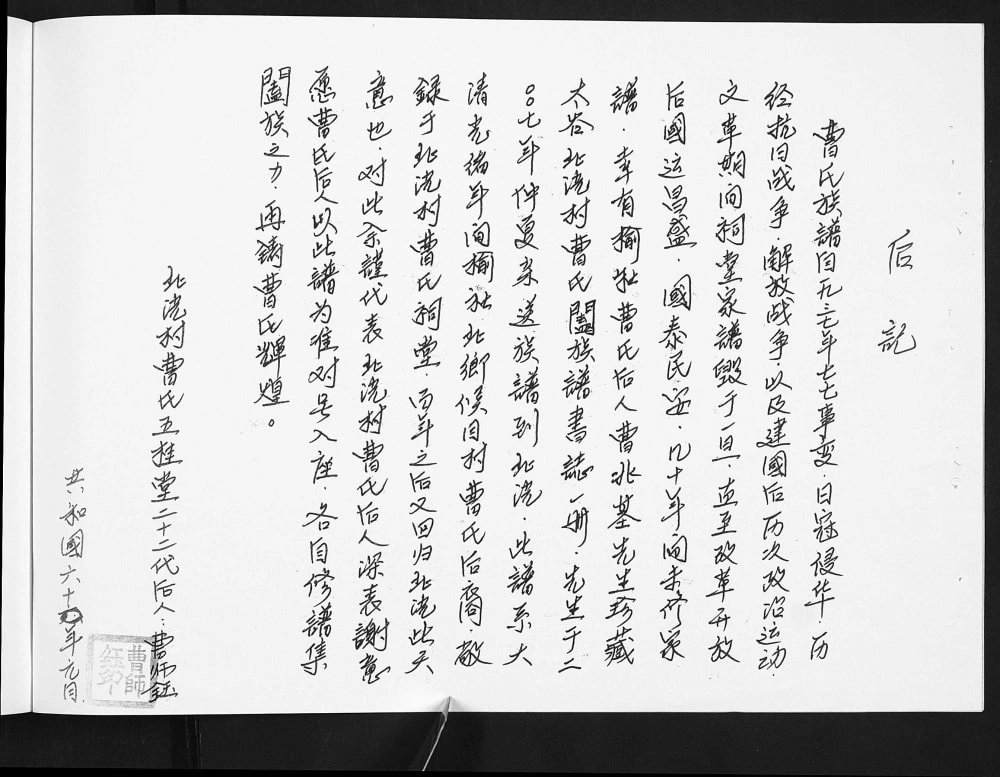 后記
曹氏族譜自一九三七年七七事变·日寇侵华·历
经抗日战争·解放战争·以及建國后历次政治运动·
文革期间祠堂家譜毁于一旦·直至改革开放
后國运昌盛·國泰民安·几十年间未修家
譜·幸有榆社曹氏后人曹兆基先生珍藏
太谷北洸村曹氏闔族譜書誌一册·先生于二
〇〇七年仲夏亲送族譜到北洸·此譜系大
清光绪年间榆社北鄉候目村曹氏后裔·敬
録于北洸村曹氏祠堂·百年之后又回归北洸此天
意也·对此余謹代表北洸村曹氏后人深表謝意
愿曹氏后人以此譜为准对号入座·各自修譜集
闔族之力·再鑄曹氏輝煌。
北洸村曹氏五桂堂二十二代后人：曹师鈺
共和國六十年元月
曹師
鈺印